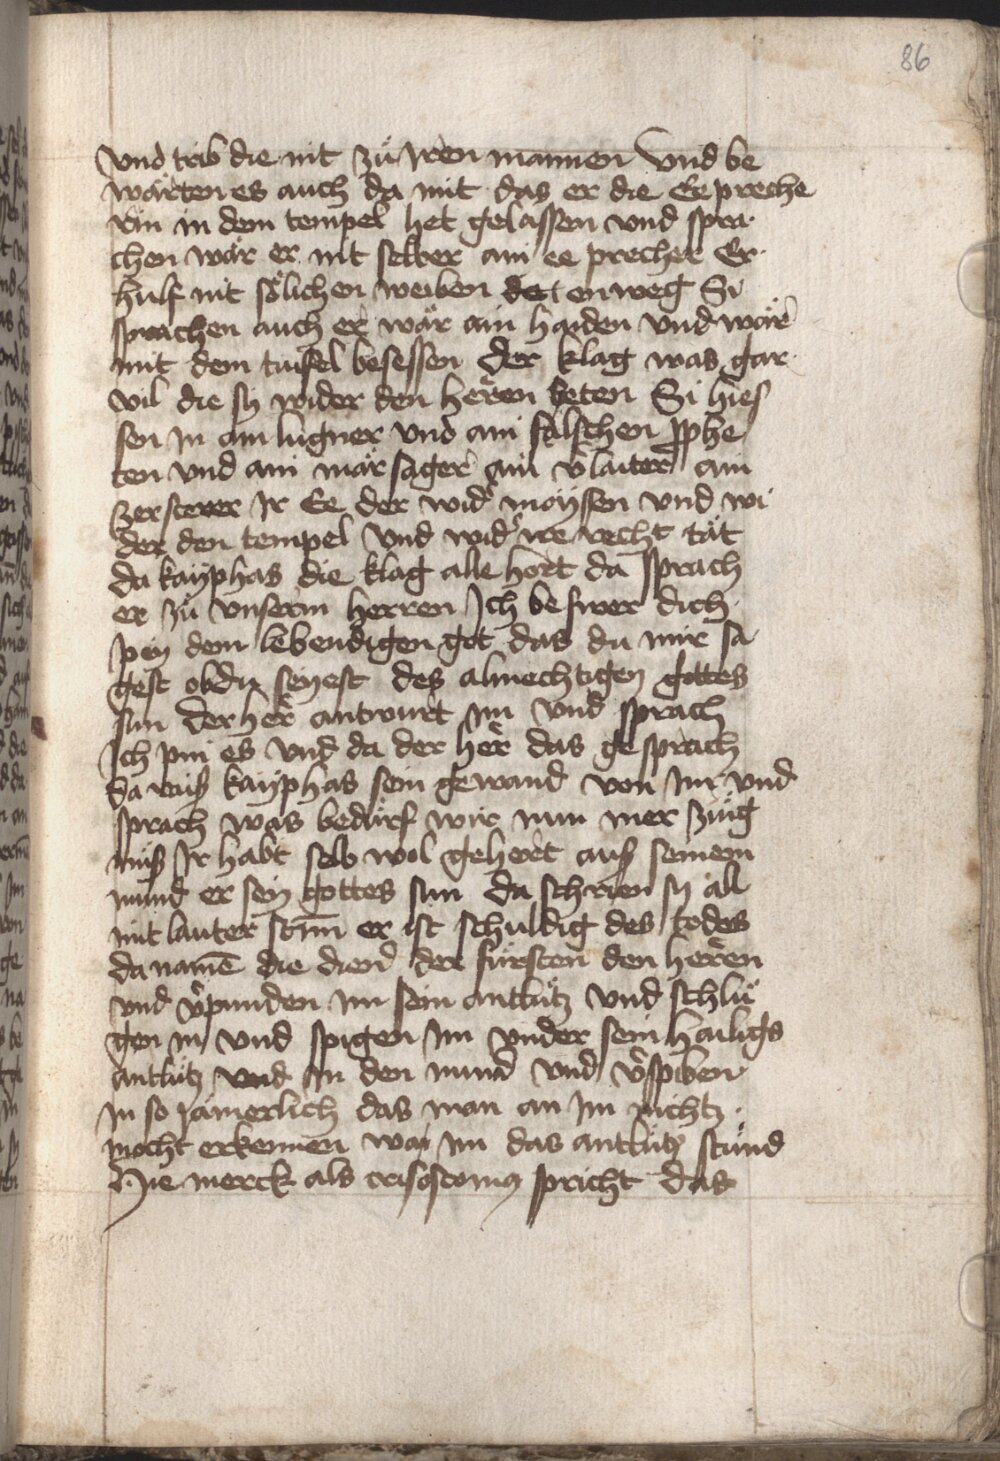 86
vnd trib die nit zů Jren mannen Vnd be
wärten es auch da mit das er die Ee preche
rin in dem tempel het gelassen vnd spra
chen wär er nit selber ain ee precher Er
hulf nit sölichen weiben der enweg Si
sprachen auch er wär ain haiden vnd wär
mit dem tuifel besessen der klag was gar
vil die sy wider den herren heten Si hies
sen jn ain lugner vnd ain falschen pphe
ten vnd ain mär sager ain v̾laiter ain
zersterer Jr Ee der wid̾ moysen vnd wi
der den tempel vnd wid̾ ire recht tät
da kayphas die klag alle hort da sprach
er zů vnserm herren Jch beswer dich
pey dem lebendigen got das du mir sa
gest ob du seyest des almechtigen gottes
sun der her antwurt im vnd sprach
Jch pin es vnd da der her das gesprach
da raiß kayphas sein gewand von Jm vnd
sprach was bedürf wir nun mer züug
nuß Jr habt selb wol gehert auß seinem
mund er sey gottes sun da schrien sy all
mit lauter stim̄ er ist schuldig des todes
da namē die diend̾ der fürsten den herren
vnd v̾punden im sein antlütz vnd schlu
gen in vnd spigen im vnder sein hailigs
antlütz vnd in den mund vnd v̾spiben
jn so jämerlich das man an im nichtz
mocht erkennen wa im das antlütz stůnd
Hie merck als crisostomus spricht das